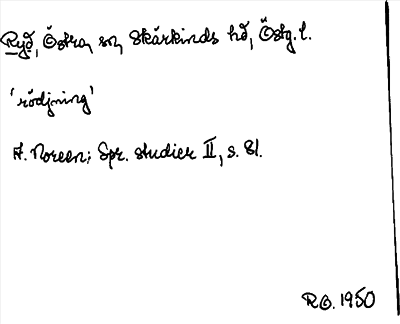 Ryd, Östra, sn, Skärkinds hd, Östg. l.
'rödjning'
A. Noreen; Spr. studier II, s. 81.
R.O. 1950